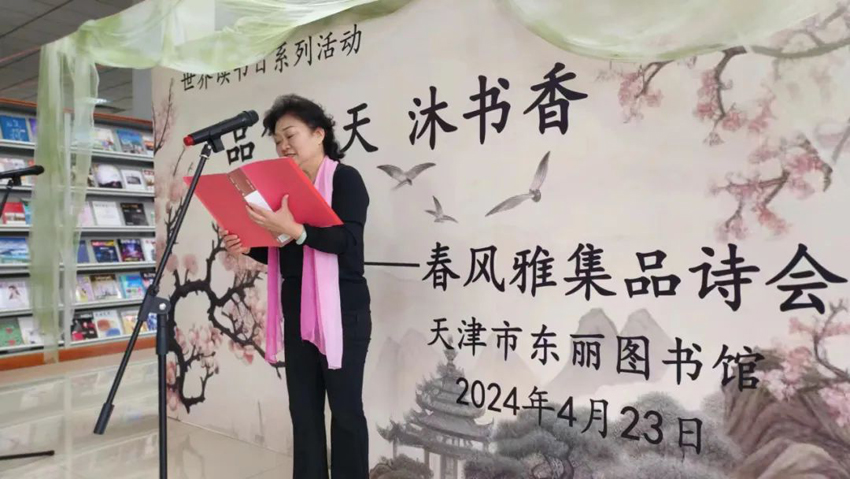 世界读书日系列活动
品 天 沐书香
——春风雅集品诗会
天津市东丽图书馆
2024年4月23日